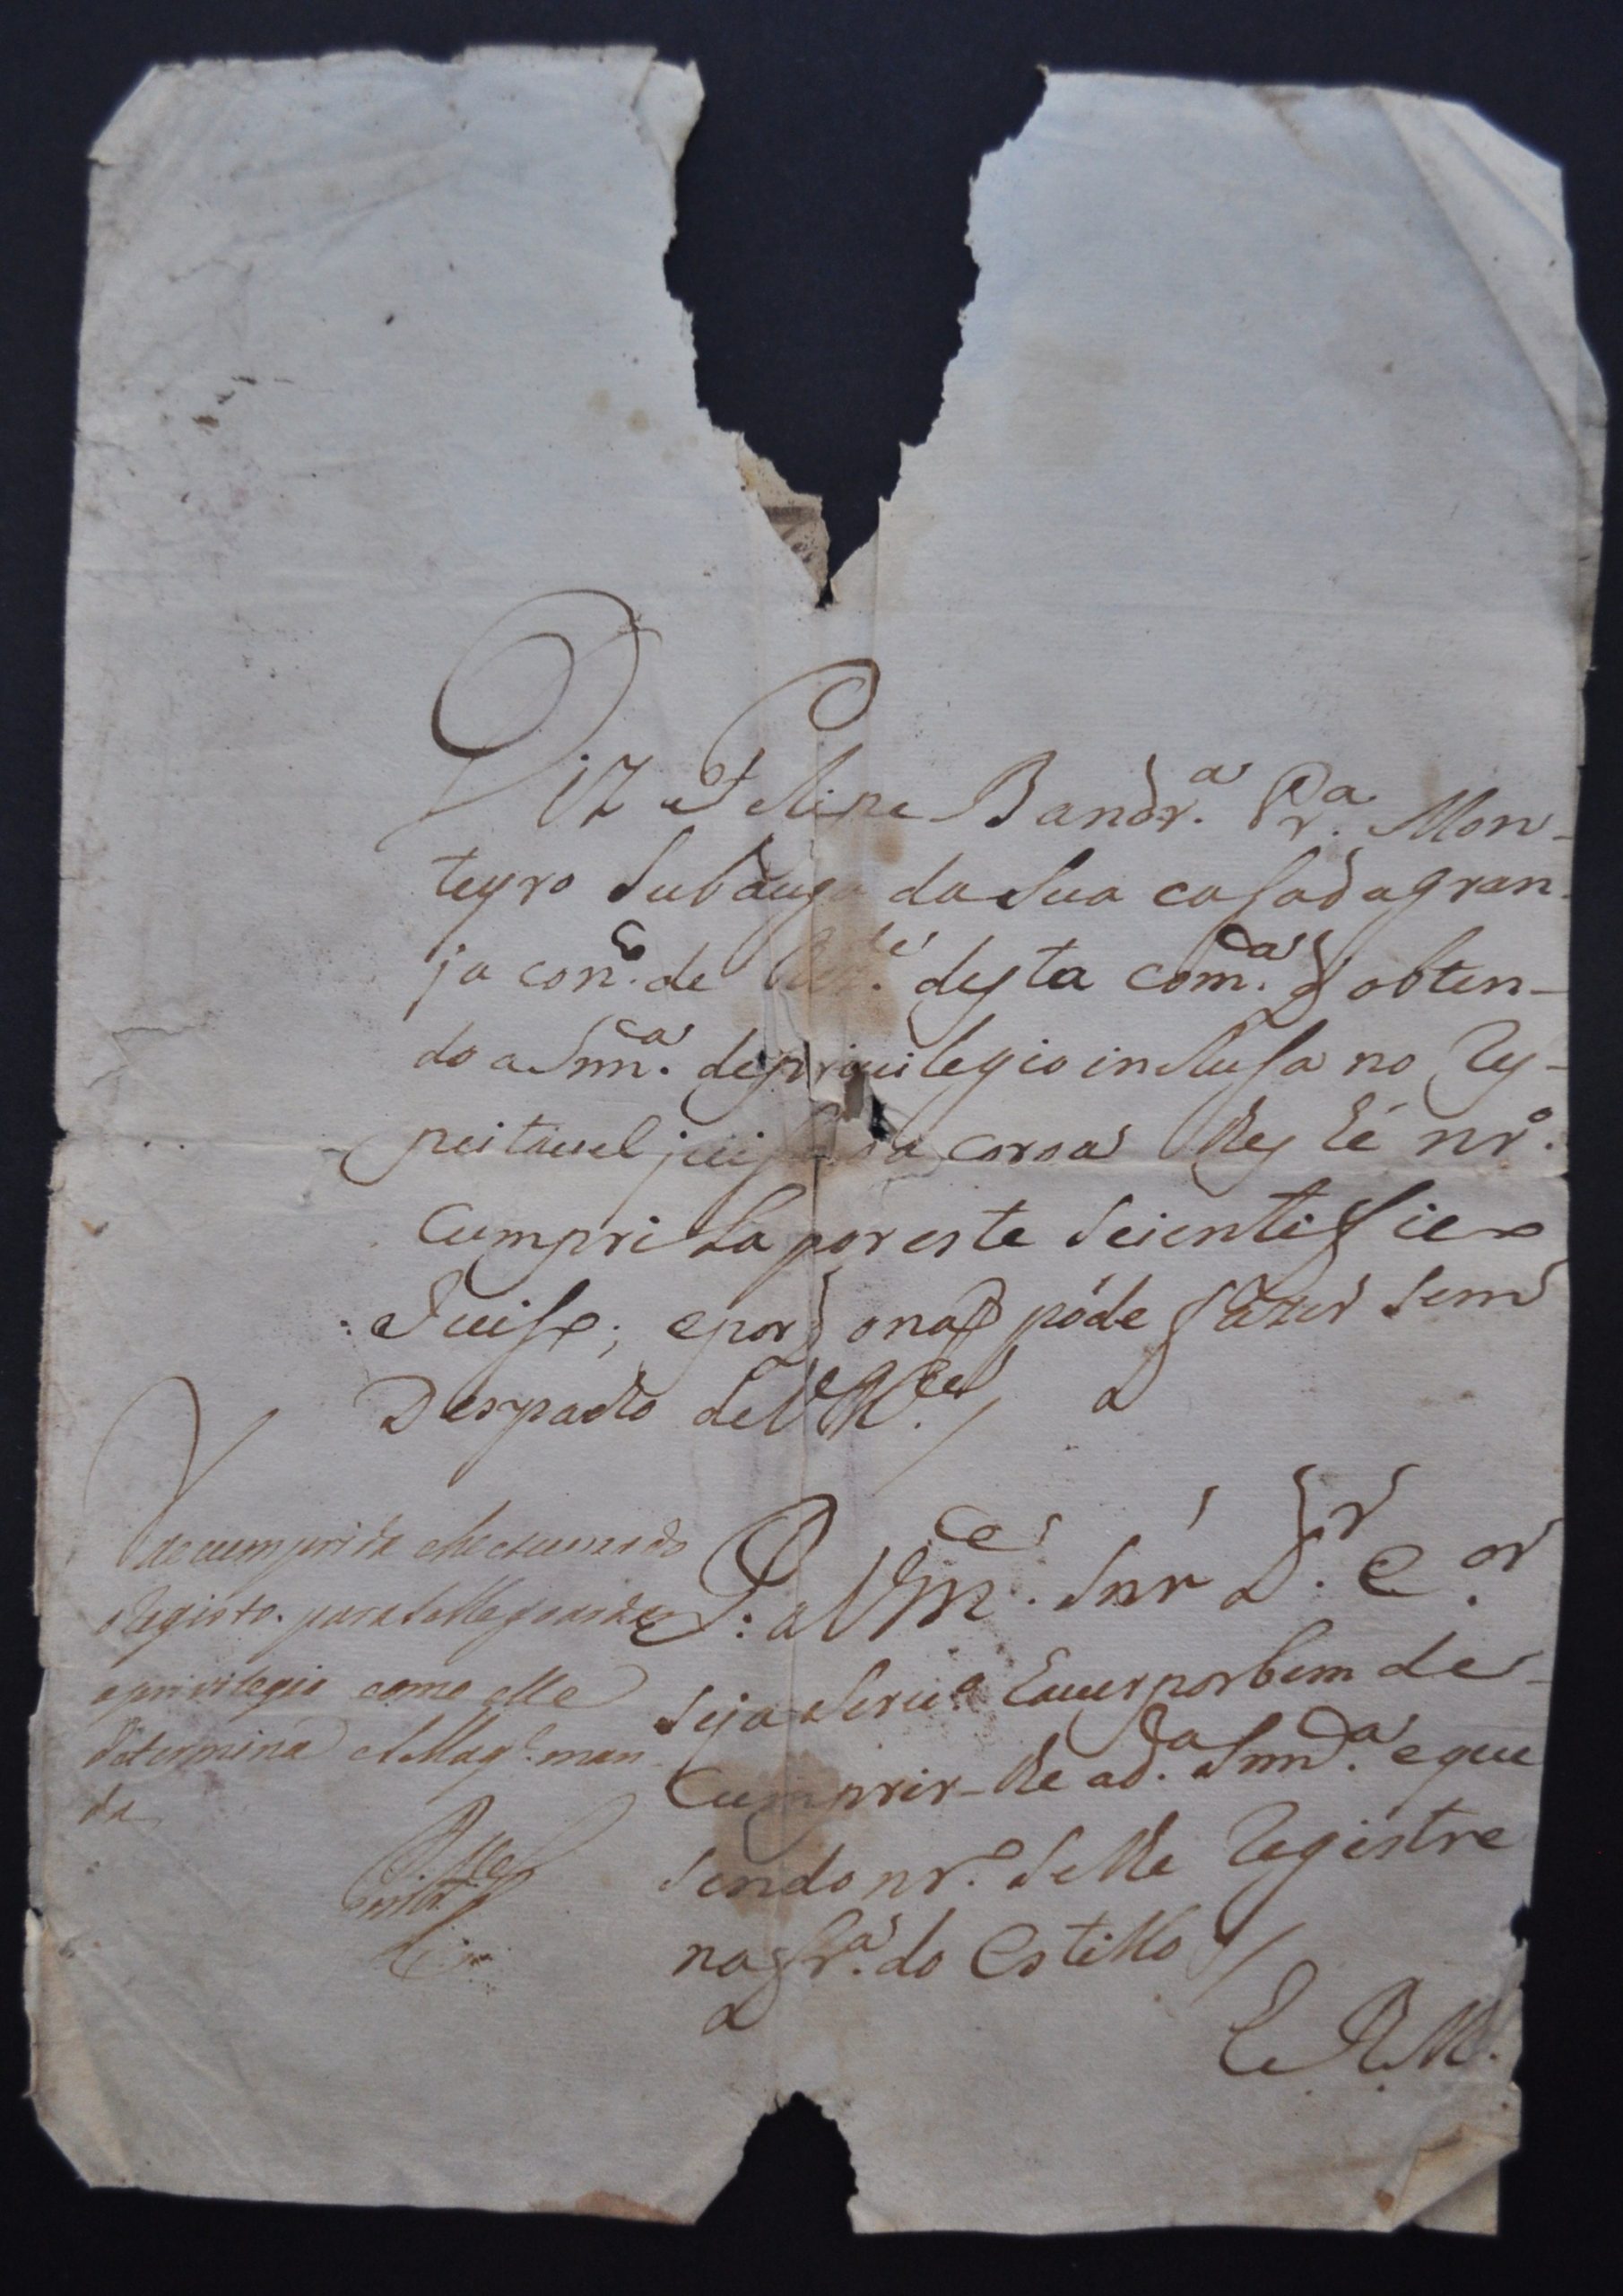 Diz Felipe Bandr.ª Pr.ª Mon-
teyro Subauga da Sua casa da gran-
ja con.º de desta com.ca q obten-
do a Snn.ca de privilegio inclusa no Res-
peitavel juiso da coroa lhe hé nr.º
Cumprilla por este Scientifico
Juiso; e por q o naõ póde fazer sem
Despacho de VM.ce /
P: a Vm.ce Snr D.r C.or
Seja Serv.º haver por bem de
Cumprir-lhe a d.ª Snn.ca e que
sendo nr.º Se lhe registre
na fr.ª do Estillo /
E R M.
Registo. para se lhe guardar
o privilegio como elle
determina e Mag.e man
da